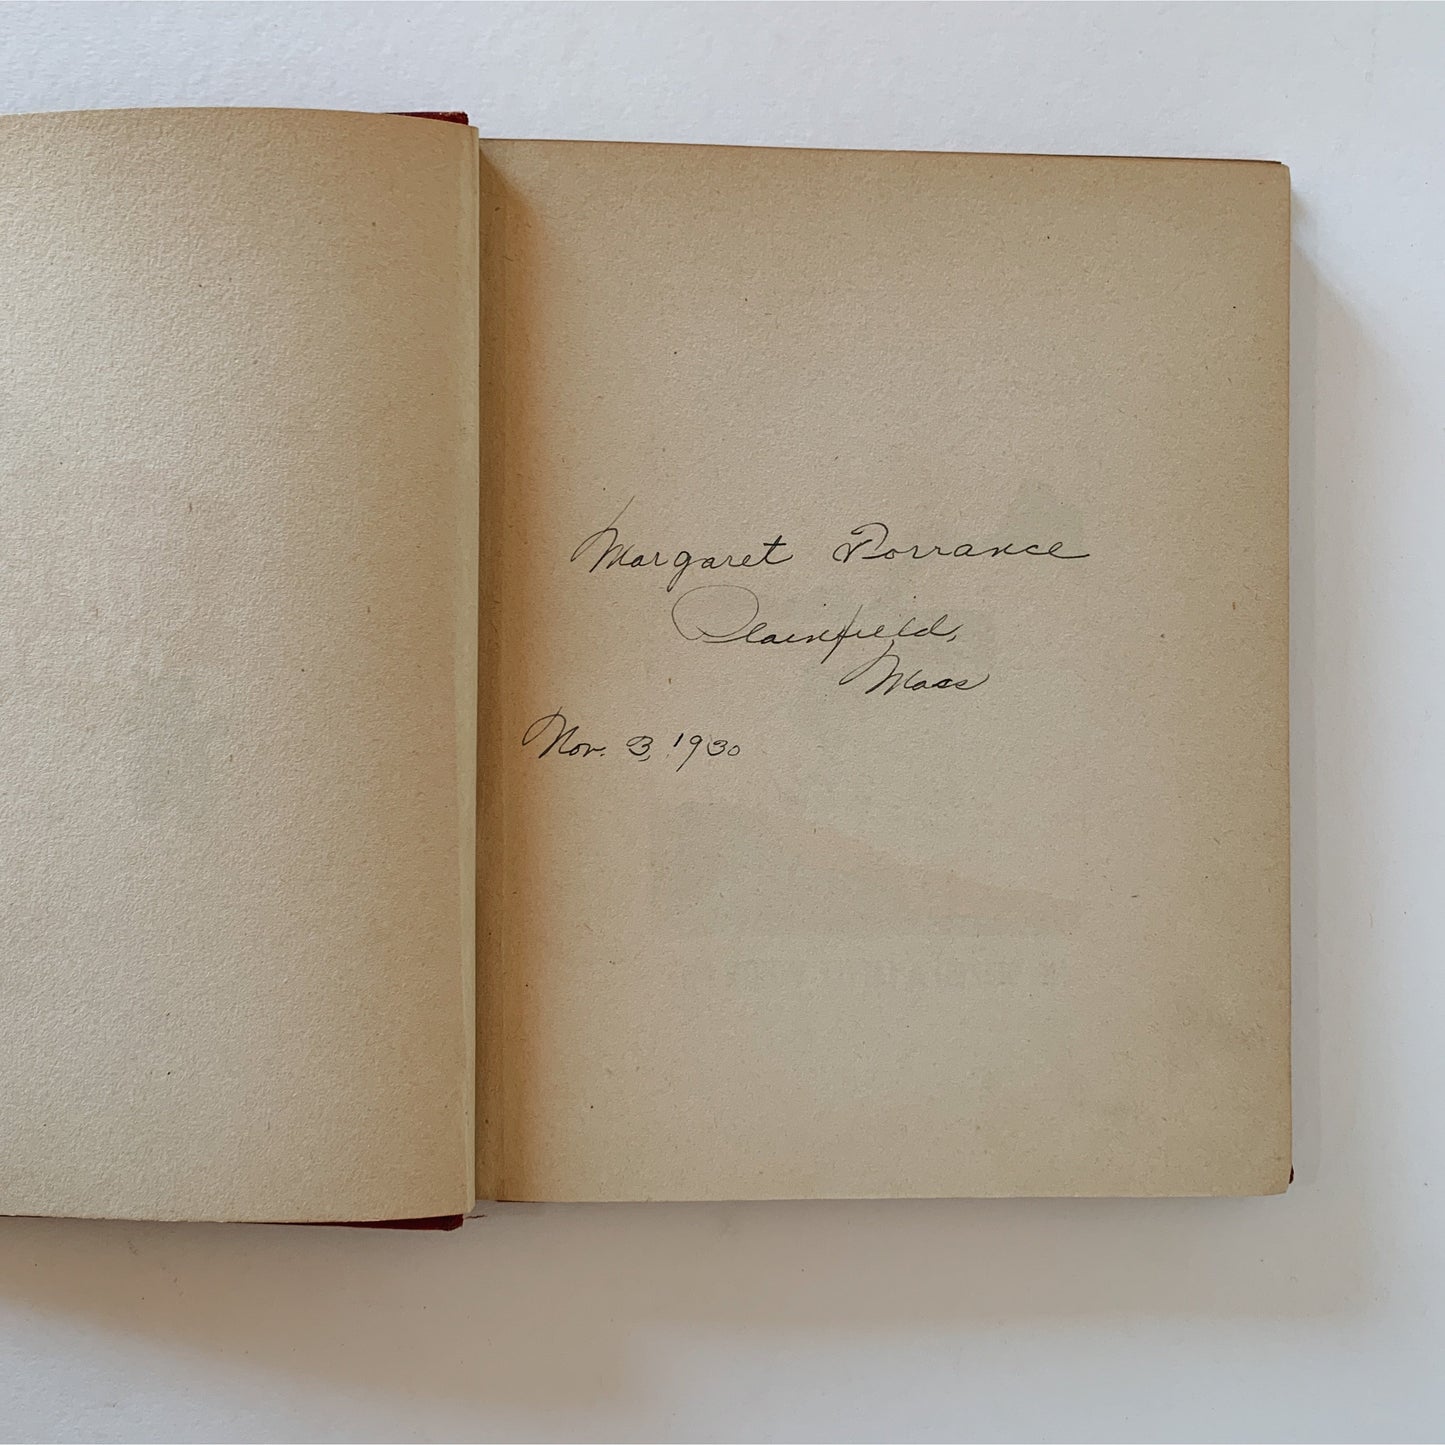 Margaret Dorrance
Plainfield,
Mass
Nov. 3, 1930